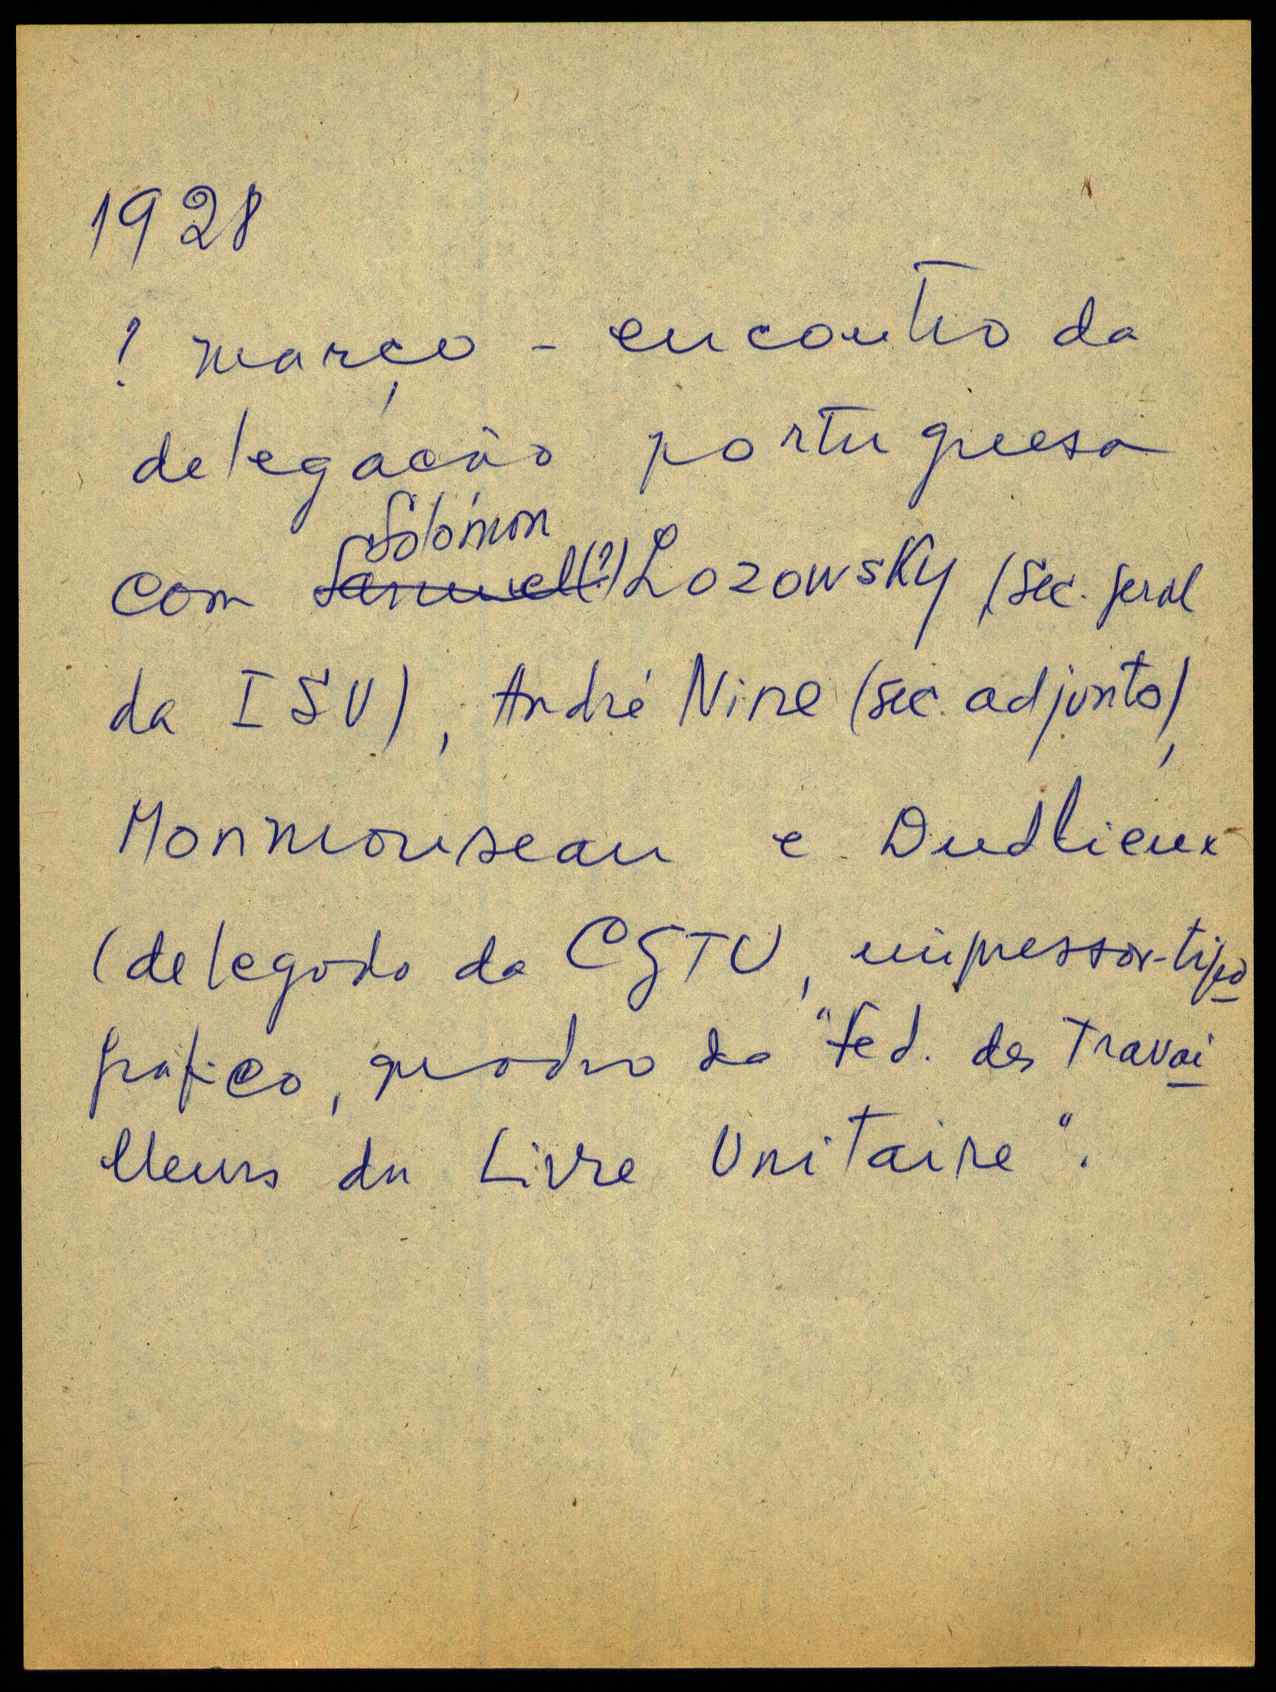 1928
? março - encontro da
delegação portuguesa
Solomon
com Samuel(?) Lozowsky (Sec. geral
da ISV), André Nine (sec. adjunto),
Monmouseau e Dudlieux
(delegado da CGTU, impressor-tipo
gráfico, quadro da "Fed. des Travai
lleurs du Livre Unitaire".